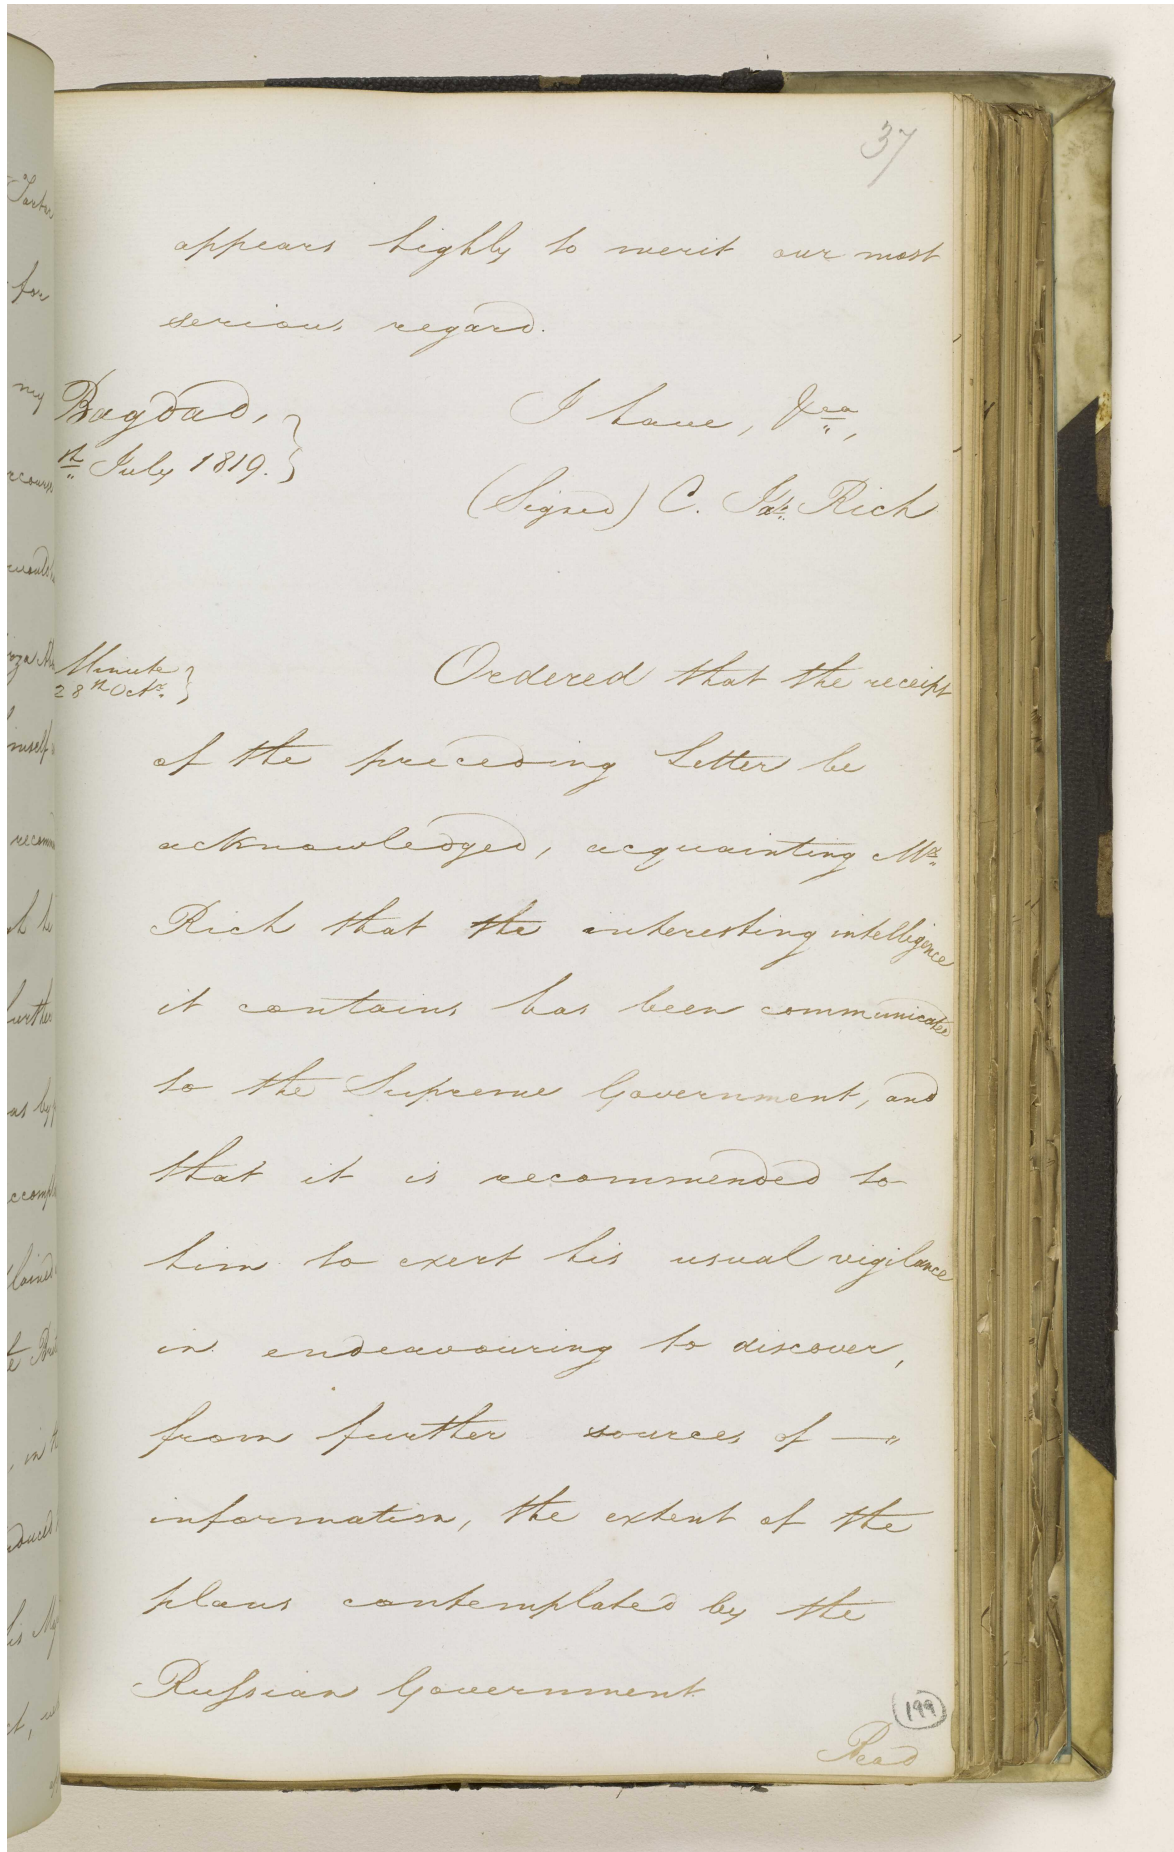 37
appears highly to merit our most
serious regard.
Bagdad,
th July 1819.
I have, &ca,
(Signed) C. Jas. Rich
Minute
28th Octr.
Ordered that the receipt
of the preceding Letter be
acknowledged, acquainting Mr.
Rich that the interesting intelligence
it contains has been communicated
to the Supreme Government, and
that it is recommended to
him to exert his usual vigilance
in endeavouring to discover,
from further sources of —"
information, the extent of the
plans contemplated by the
Russian Government.
199
Read